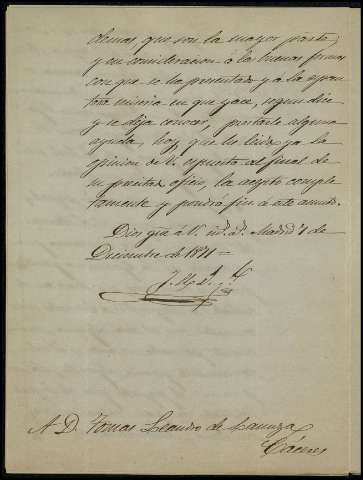 demas, que son la mayor parte,
y en consideracion á las buenas formas
con que se ha presentado y a la espan
tosa miseria en que yace, segun dice
y se deja conocer, prestarle alguna
ayuda, hoy, que he leido ya la
opinion de V. espuesta al final de
su precitado oficio, la acepto comple
tamente y pondrá fin á este asunto.
Dios gue á V. ms. as. Madrid 1 de
Diciembre de 1871 =
A. D. Tomas Leandro de
Cáceres